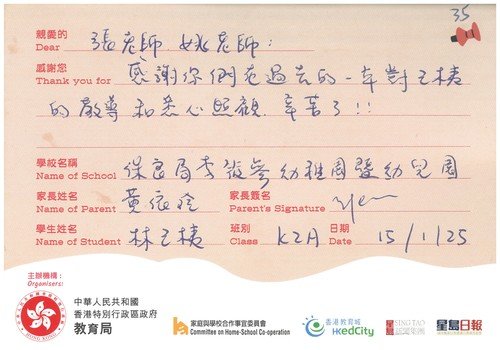 35
親愛的 張老師、姚老師：
Dear
感謝您 感謝你們在過去的一年對王棋
Thank you for
的教導和悉心照顧，辛苦了!!
學校名稱 保良局李筱參幼稚園暨幼兒園
Name of School
家長姓名 黃 家長簽名
Name of Parent Parent's Signature
學生姓名 林 班別 K2A 日期 15/1/25
Name of Student Class Date
主辦機構：
Organisers:
中華人民共和國
香港特別行政區政府
教育局
家庭與學校合作事宜委員會
Committee on Home-School Co-operation
香港教育城
HKedCity
SING TAO
星島日報